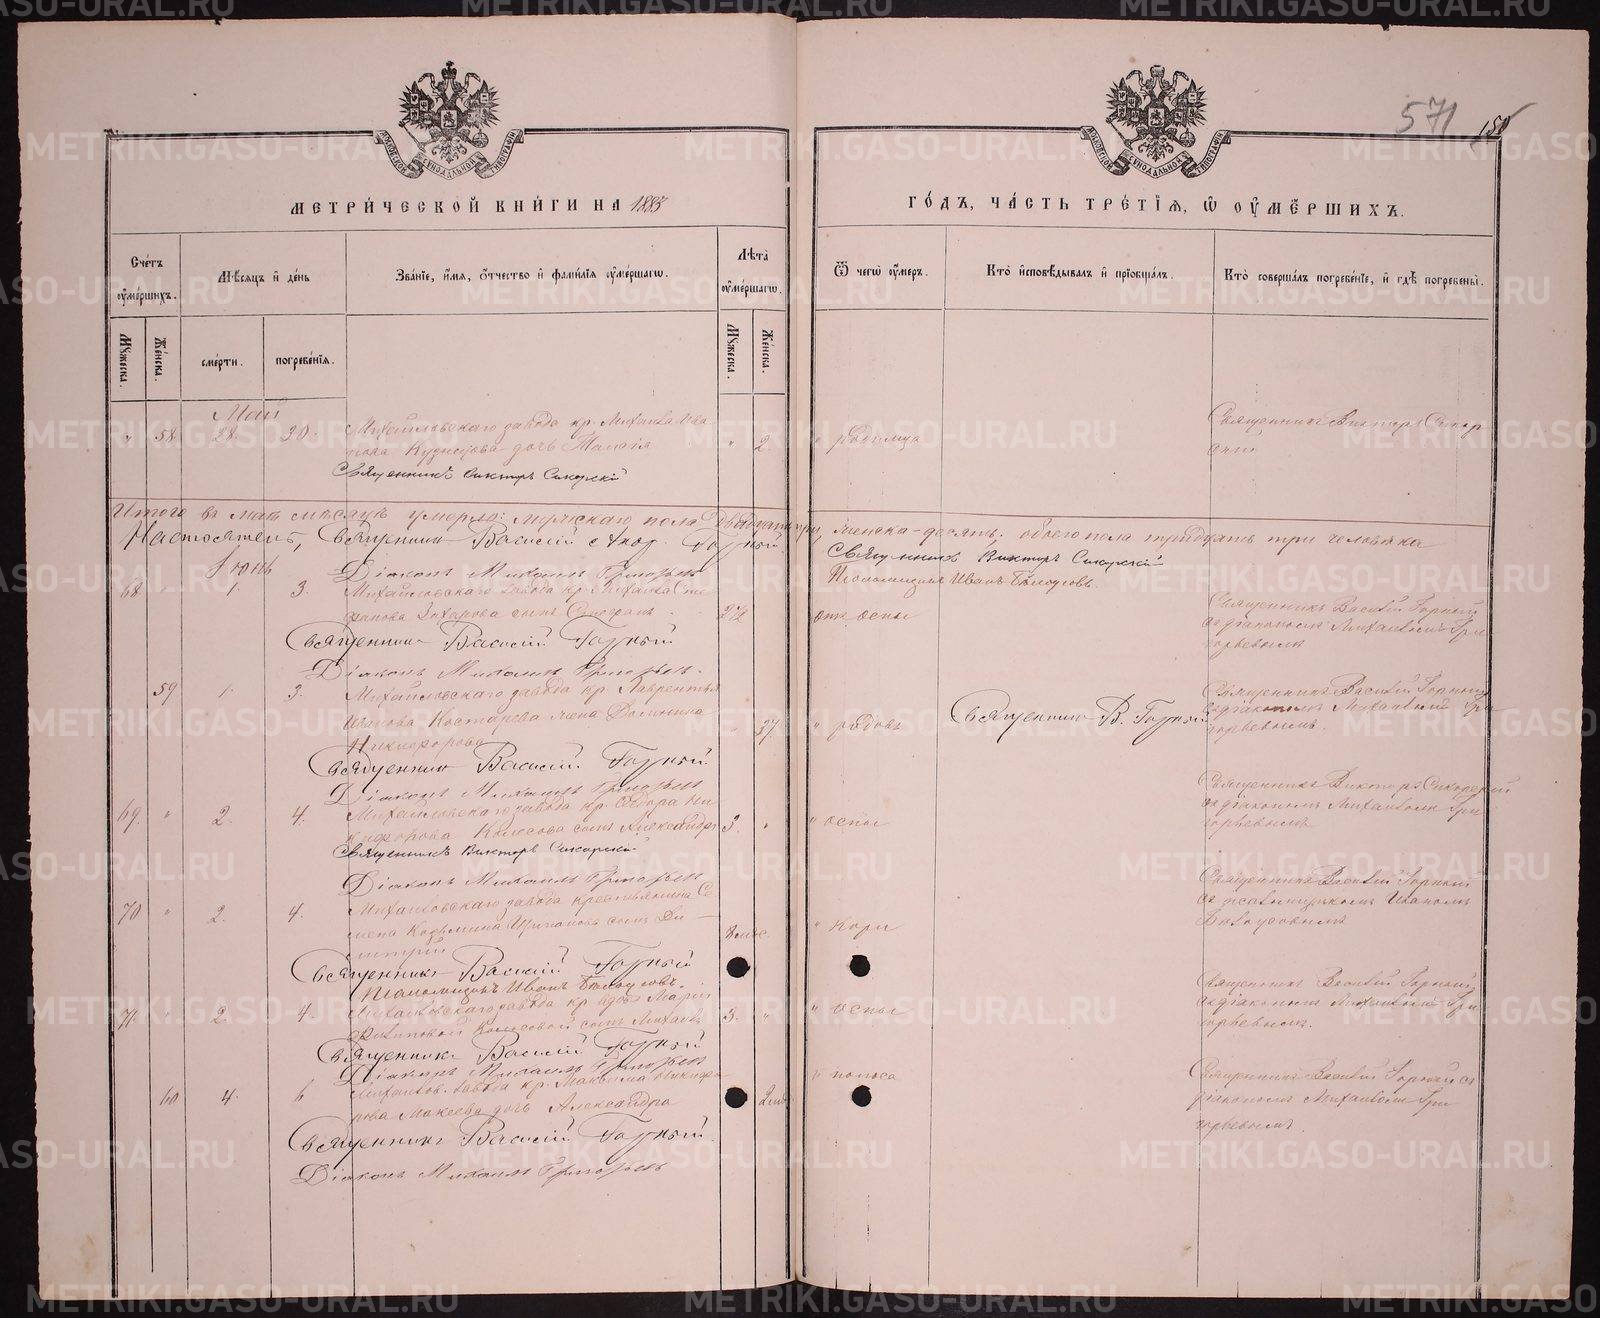 571
150
МЕТРИЧЕСКОЙ КНИГИ НА 1883
ГОДЪ, ЧАСТЬ ТРЕТІЯ, Ѿ ОУМЕРШИХЪ.
Счетъ оумершихъ.
Мѣсяцъ и день
Званіе, имя, отчество и фамилія оумершагѡ.
Лѣта оумершагѡ.
Ѿ чегѡ оумеръ.
Кто исповѣдывалъ и пріобщалъ.
Кто совершалъ погребеніе, и гдѣ погребены.
Мужеска.
Женска.
смерти.
погребенія.
Мужеска.
Женска.
Май
" 58 28. 30. Михайловскаго завода кр. Михаила Ива
нова Кузнецова дочь " 2. " родимца
Священникъ Викторъ Сикор
Священникъ Викторъ Сикорскій
Итого въ маѣ мѣсяцѣ умерло: мужскаго пола двадцать три, женска-десять. обоего пола тридцать три человѣка
Настоятель, Священникъ Василій Горный.
Священникъ Викторъ Сикорскій
Діаконъ Михаилъ Григорьевъ
Псаломщикъ Иванъ Бѣлоусовъ.
Іюнь
68 1. 3. Михайловскаго завода кр. Михаила Сте
фанова Захарова сынъ Стефанъ отъ оспы
Священникъ Василій Горный
съ діакономъ Михаиломъ Гри
горьевымъ
Священникъ Василій Горный
Діаконъ Михаилъ Григорьевъ.
59 1. 3. Михайловскаго завода кр. Лаврентья
Костарева жена
Никифорова 37 " родовъ
Священникъ В. Горный
Священникъ Василій Горный
съ діакономъ Михаиломъ Гри
горьевымъ.
Священникъ Василій Горный
Діаконъ Михаилъ Григорьевъ
69. " 2. 4. Михайловскаго завода кр. Ѳедора Ни
кифорова Колесова сынъ Александръ 3. " " оспы
Священникъ Викторъ Сикорскій
съ діакономъ Михаиломъ Гри
горьевымъ
Священникъ Викторъ Сикорскій
Діаконъ Михаилъ Григорьевъ
70 " 2. 4. Михайловскаго завода крестьянина Се
мена Козьмина сынъ Ди
митрій 8 мѣс. " кори
Священникъ Василій Горный
съ псаломщикомъ Иваномъ
Бѣлоусовымъ
Священникъ Василій Горный
Псаломщикъ Иванъ Бѣлоусовъ.
71. 2. 4. Михайловскаго завода кр. вдовы Маріи
Филиповой Колесовой сынъ Михаилъ 3. " " оспы
Священникъ Василій Горный
съ діакономъ Михаиломъ Гри
горьевымъ.
Священникъ Василій Горный
Діаконъ Михаилъ Григорьевъ
60 4. 6 Михайлов. завода кр. Максима Никифо
рова Макеева дочь Александра " поноса
Священникъ Василій Горный съ
діакономъ Михаиломъ Гри
горьевымъ.
Священникъ Василій Горный.
Діаконъ Михаилъ Григорьевъ
METRIKI.GASO-URAL.RU